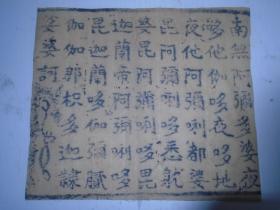 南無阿彌多婆夜
哆他伽哆夜哆地
夜他阿彌唎都婆
毘阿彌唎哆悉躭
婆毘阿彌唎哆毘
迦蘭帝阿彌唎哆
毘迦蘭哆伽彌膩
伽伽那枳多迦隸
娑婆訶